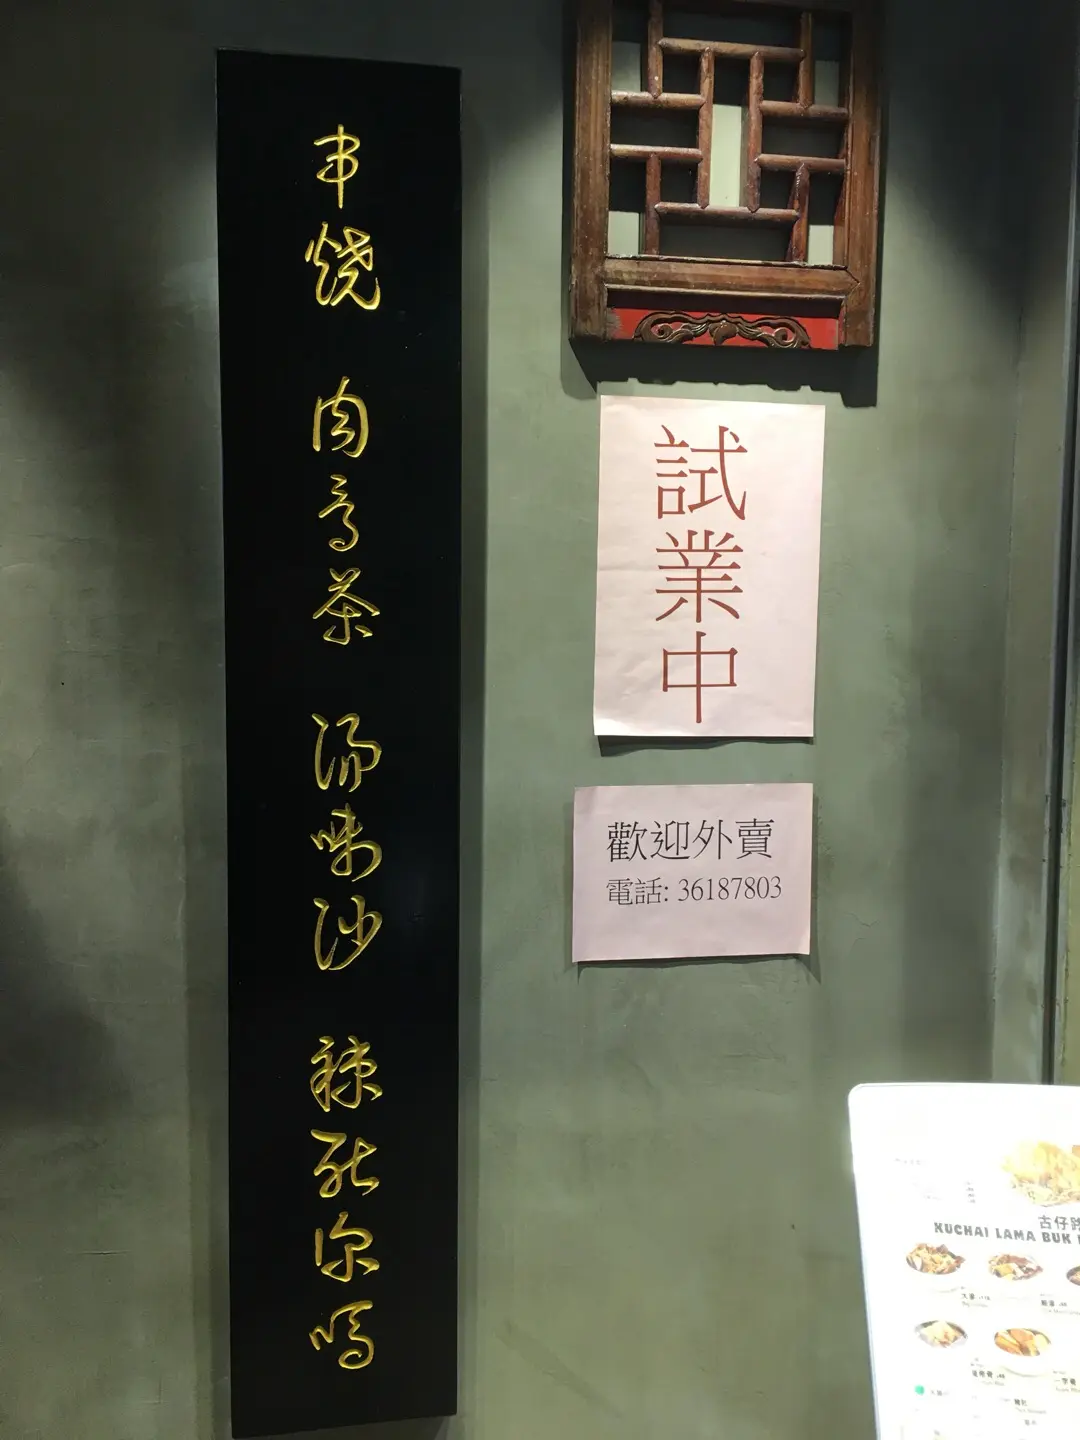 串烧 肉骨茶 汤喇沙 辣死你吗
試業中
歡迎外賣
電話: 36187803
古仔
KUCHAI LAMA BUK